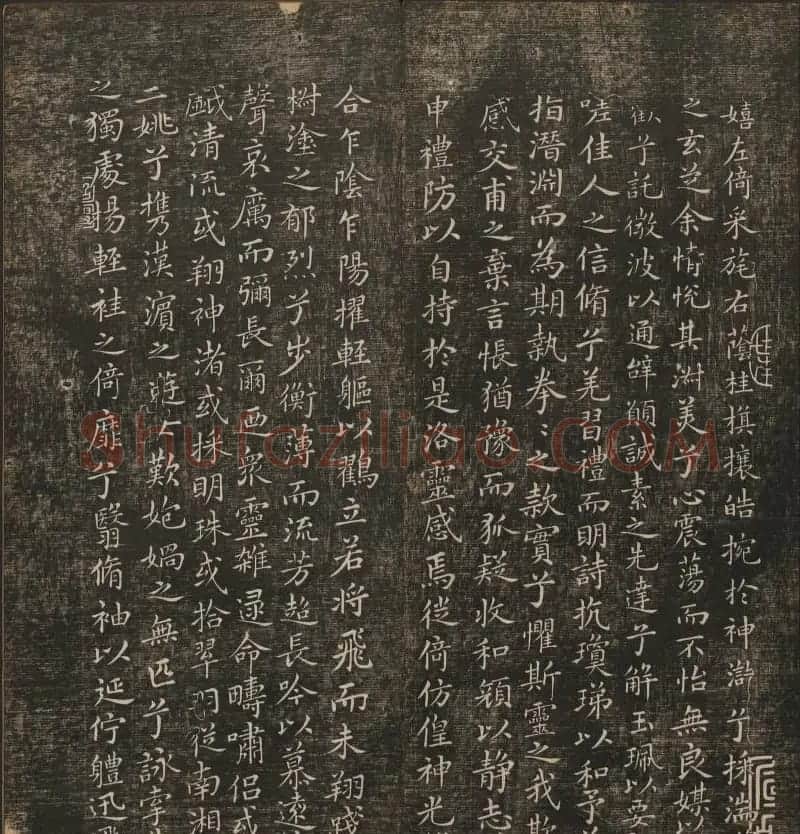 嬉左倚采旄右蔭桂旗攘皓捥於神滸兮採湍
之玄芝余情悅其淑美兮心震蕩而不怡無良媒
兮託微波以通辭願誠素之先達兮解玉珮以要
嗟佳人之信脩兮羌習禮而明詩抗瓊珶以和予
指潛淵而為期執拳〻之款實兮懼斯靈之我欺
感交甫之棄言悵猶豫而狐疑收和顏以静志
申禮防以自持於是洛靈感焉徙倚仿偟神光
合乍陰乍陽擢輕軀以鶴立若將飛而未翔踐
樹塗之郁烈兮步衡薄而流芳超長吟以慕遠
聲哀厲而彌長爾迺眾靈雜遝命疇嘯侶或
戲清流或翔神渚或採明珠或拾翠羽從南湘
二姚兮携漢濱之遊女歎炮媧之無匹兮詠牽
之獨處揚輕袿之倚靡兮翳脩袖以延佇體迅飛
Shufaziliao.COM